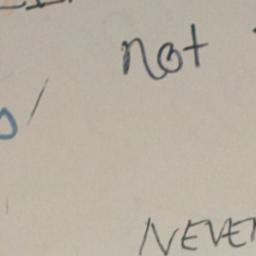 not
NEVER